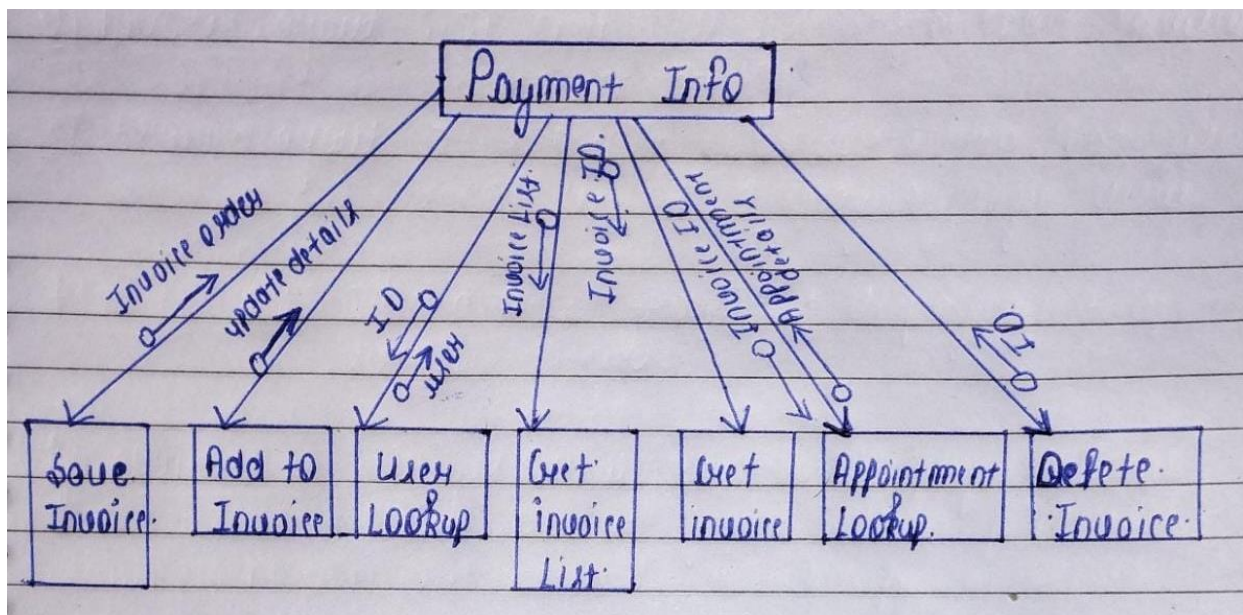 Payment Info
Invoice Order
update details
ID
User
Invoice List.
Invoice ID.
Invoice ID
Appointment
details
ID
Save
Invoice.
Add to
Invoice
User
Lookup
Get
invoice
List.
Get
invoice
Appointment
Lookup.
Delete.
Invoice.